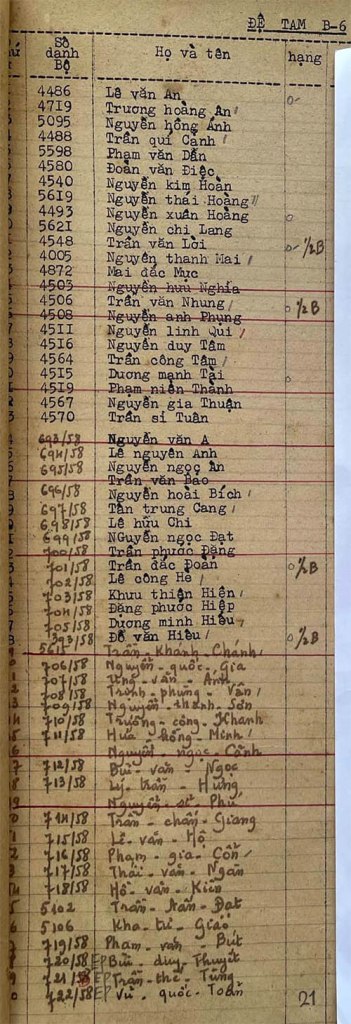 ĐỆ TAM B-6
Số danh Bộ Họ và tên hạng
4486 Lê văn An 0-
4719 Trương hoàng Ân
5095 Nguyễn hồng Ánh
4488 Trần quí Cảnh
5598 Phạm văn Dần
4580 Đoàn văn Điệc
4540 Nguyễn kim Hoàn
5619 Nguyễn thái Hoàng
4493 Nguyễn xuân Hoàng 0
5621 Nguyễn chi Lang
4548 Trần văn Lời 0- 1/2B
4005 Nguyễn thanh Mai
4872 Mai đắc Mực
4503 Nguyễn hưu Nghĩa
4506 Trần văn Nhung 0 1/2B
4508 Nguyễn anh Phụng
4511 Nguyễn linh Qui
4516 Nguyễn duy Tâm
4564 Trần công Tâm
4515 Dương mạnh Tài 0
4519 Phạm niên Thành
4567 Nguyễn gia Thuận
4570 Trần sĩ Tuân
693/58 Nguyễn văn A
694/58 Lê nguyên Anh
695/58 Nguyễn ngọc Ân
Trần văn Bao
696/58 Nguyễn hoài Bích
697/58 Tân trung Cang
698/58 Lê hữu Chi
699/58 NGuyễn ngọc Đạt
700/58 Trần phước Đặng
701/58 Trần đắc Đoàn 0 1/2B
702/58 Lê công Hè
703/58 Khưu thiện Hiền
704/58 Đặng phước Hiệp
705/58 Dương minh Hiếu
393/58 Đỗ văn Hiếu 0 1/2B
5615 Trần - Khánh - Chánh
706/58 Nguyễn - quốc - Gia
707/58 Ưng - văn - Anh
708/58 Trịnh - phụng - Vân
709/58 Nguyễn - thành - Sơn
710/58 Trương - công - Khanh
711/58 Hứa - hồng - Minh
Nguyễn - ngọc - Cảnh
712/58 Bùi - văn - Ngọc
713/58 Lý - trần - Hưng
Nguyễn - sĩ - Phú
714/58 Trần - chấn - Giang
715/58 Lê - văn - Hộ
716/58 Phạm - gia - Cồn
717/58 Thái - văn - Ngân
718/58 Hồ - văn - Kiên
5102 Trần - tấn - Đạt
5106 Kha - tư - Giáo
719/58 Phạm - văn - Bút
720/58 EP Bùi - duy - Thuyết
721/58 EP Trần - thế - Tùng
722/58 EP Vũ - quốc - Toản
21